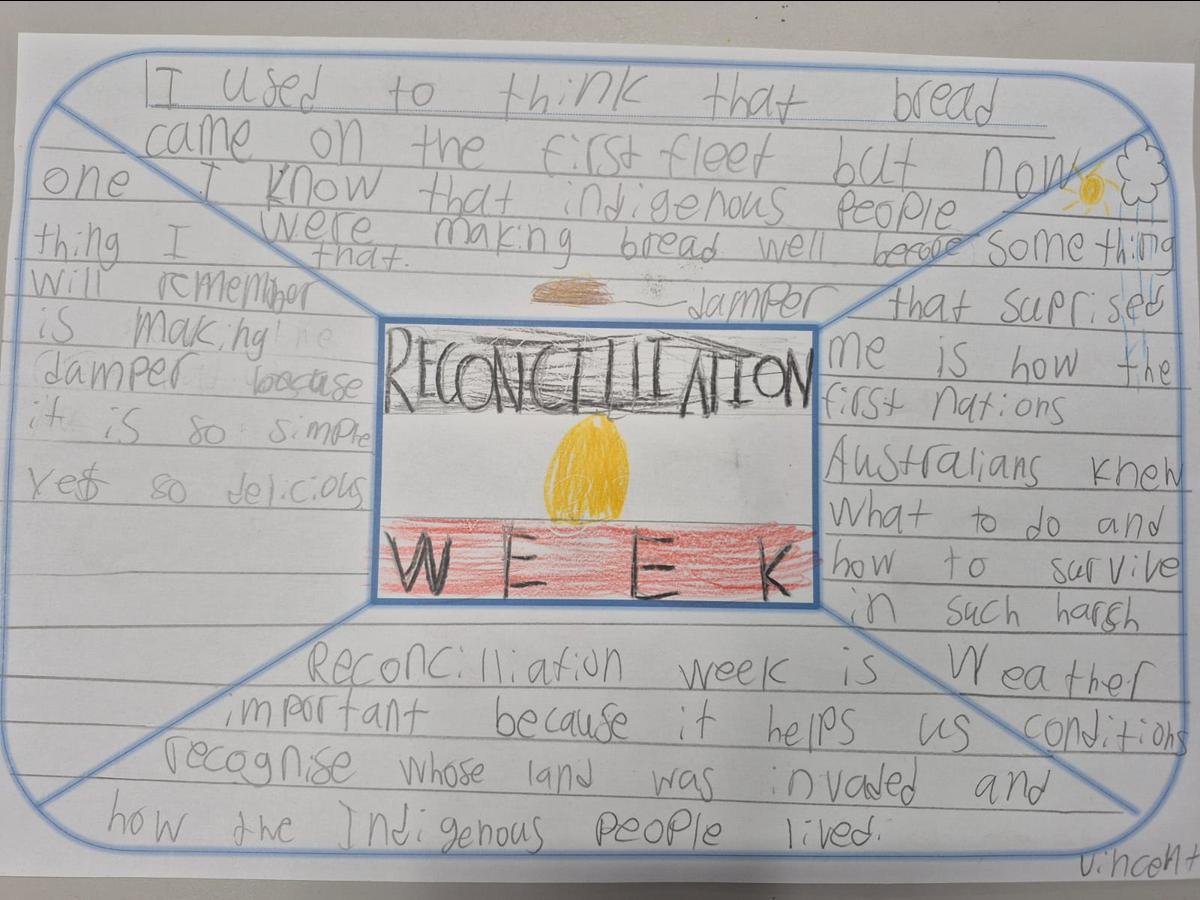 I used to think that bread
came on the first fleet but now
I know that indigenous people
were making bread well before
that.
damper
one
thing I
will remember
is making
damper because
it is so simple
yet so delicious
RECONCILIIATION
WEEK
something
that suprised
me is how the
first nations
Australians knew
what to do and
how to survive
in such harsh
Weather
conditions
Reconcilliation week is
important because it helps us
recognise whose land was invaded and
how the Indigenous people lived.
Vincent